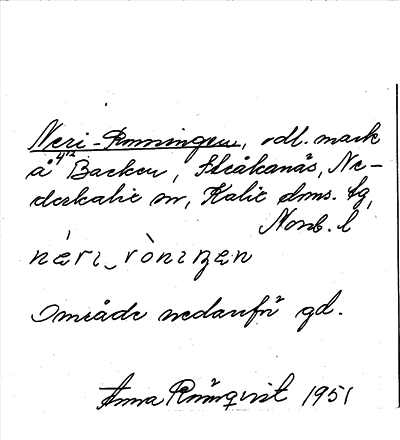 Neri-Rönningen, odl. mark
å 4/2 Backen, Stråkanäs, Ne-
derkalix sn, Kalix dms. tg,
Norrb. l
näri-röniŋen
Område nedanför gd.
Anna Rönnqvist 1951